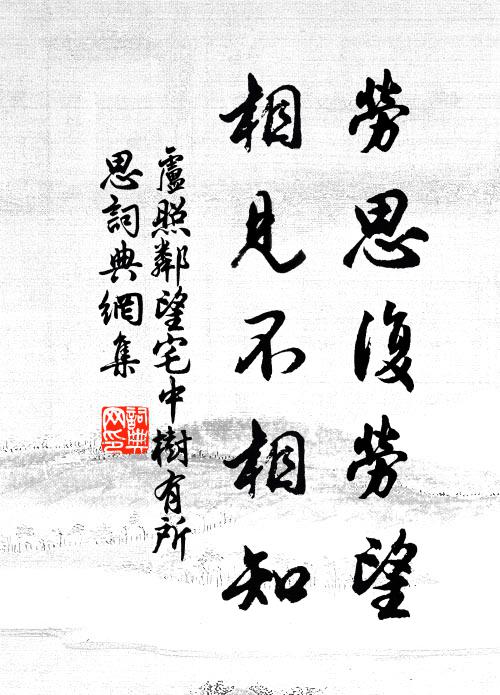 勞思復勞望
相見不相知
盧照鄰望宅中樹有所
思詞典網集
詞典網印